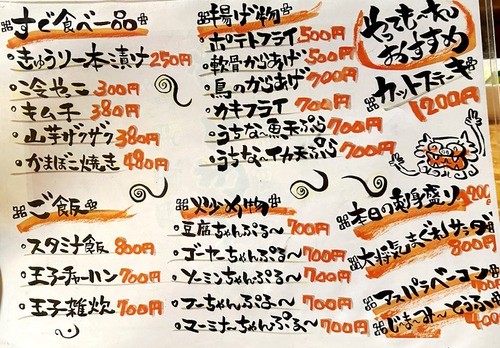 すぐ食べ一品
きゅうり一本漬け 250円
冷やっこ 300円
キムチ 380円
山芋ザクザク 380円
かまぼこ焼き 480円
ご飯
スタミナ飯 800円
玉子チャーハン 700円
玉子雑炊 700円
揚げ物
ポテトフライ 500円
軟骨からあげ 500円
鳥のからあげ 700円
カキフライ 700円
うちな〜魚天ぷら 700円
うちな〜イカ天ぷら 700円
炒め物
豆腐ちゃんぷる〜 700円
ゴーヤーちゃんぷる〜 700円
ソーミンちゃんぷる〜 700円
フーちゃんぷる〜 700円
マーミナーちゃんぷる〜 700円
おすすめ
カットステーキ
1200円
本日の刺身盛り
大将気まぐれサラダ
800円
アスパラベーコン
700円
じーまーみーどうふ